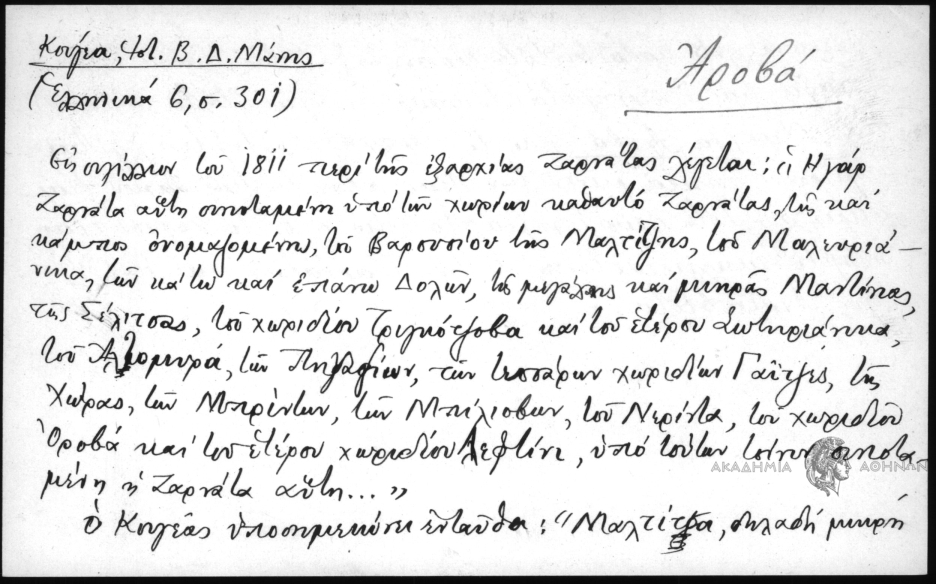 Κουγέα, Ἱστ. Β. Δ. Μάνης
(Ἑλληνικά 6, σ. 301)
Ἀροβά
Εἰς σιγίλλιον τοῦ 1811 περί τῆς ἐξαρχίας Ζαρνάτας λέγεται: "Ἡ γάρ
Ζαρνάτα αὕτη συνισταμένη ὑπό τῶν χωρίων καθαυτό Ζαρνάτας, τῆς καί
κάμπος ὀνομαζομένης, τοῦ Βαρουσίου τῆς Μαλτίτζης, τοῦ Μαλευριά-
νικα, τῶν κάτω καί ἐπάνω Δολῶν, τῆς μεγάλης καί μικρᾶς Μαντίνιας,
τῆς Σέλιτσας, τοῦ χωριδίου Τριγκότζοβα καί τοῦ ἑτέρου Σωτηριάνικα,
τοῦ Ἁλμυρά, τῶν Πηγαδίων, τῶν τεσσάρων χωριδίων Γαΐτζες, τῆς
Χώρας, τῶν Μπρίντων, τῶν Μπίλιοβων, τοῦ Νερίντα, τοῦ χωριδίου
Ὀροβά καί τοῦ ἑτέρου χωριδίου Λεφτίνι, ὑπό τούτων τοίνυν συνιστα-
μένη ἡ Ζαρνάτα αὕτη...»
ὁ Κουγέας ὑποσημειώνει ἐνταῦθα: "Μαλτίτσα, δηλαδή μικρή
ΑΚΑΔΗΜΙΑ ΑΘΗΝΩΝ